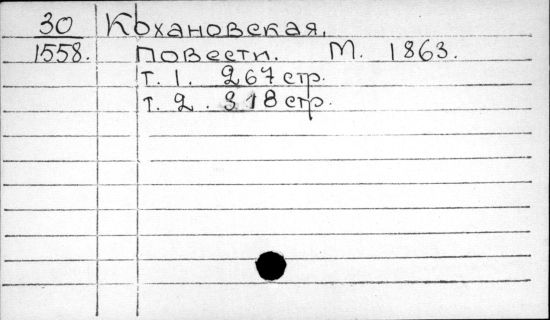 30 Кохановская,
1558. Повести. М. 1863.
т. 1. 267 стр.
т. 2. 318 стр.